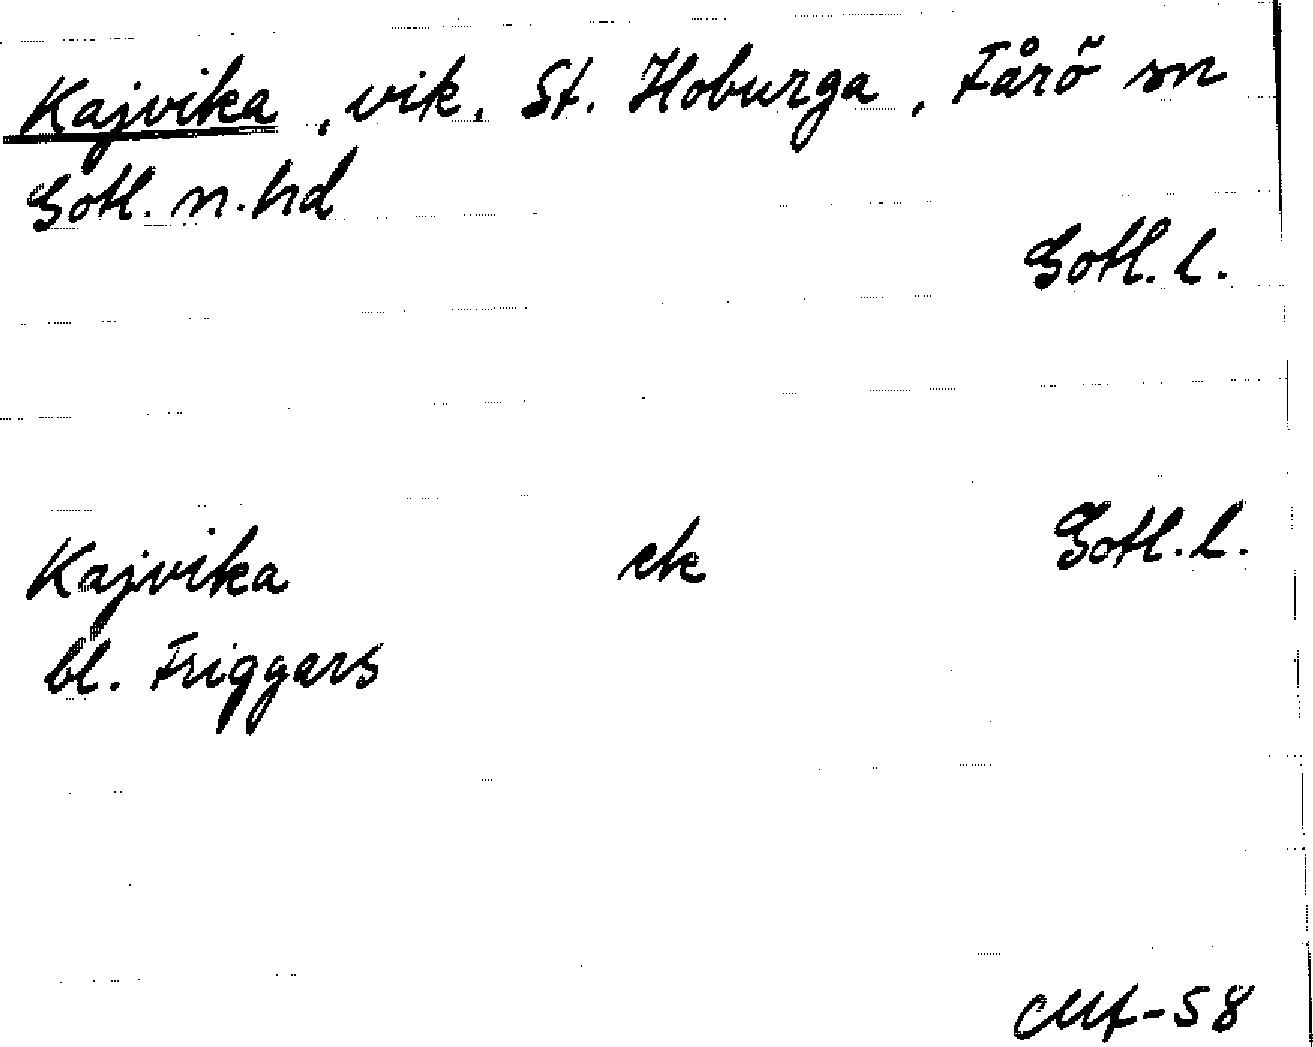 Kajvika, vik. St. Hoburga, Fårö sn
Gotl. n. hd
Gotl. l.
Kajvika ek Gotl. l.
bl. Friggars
-58